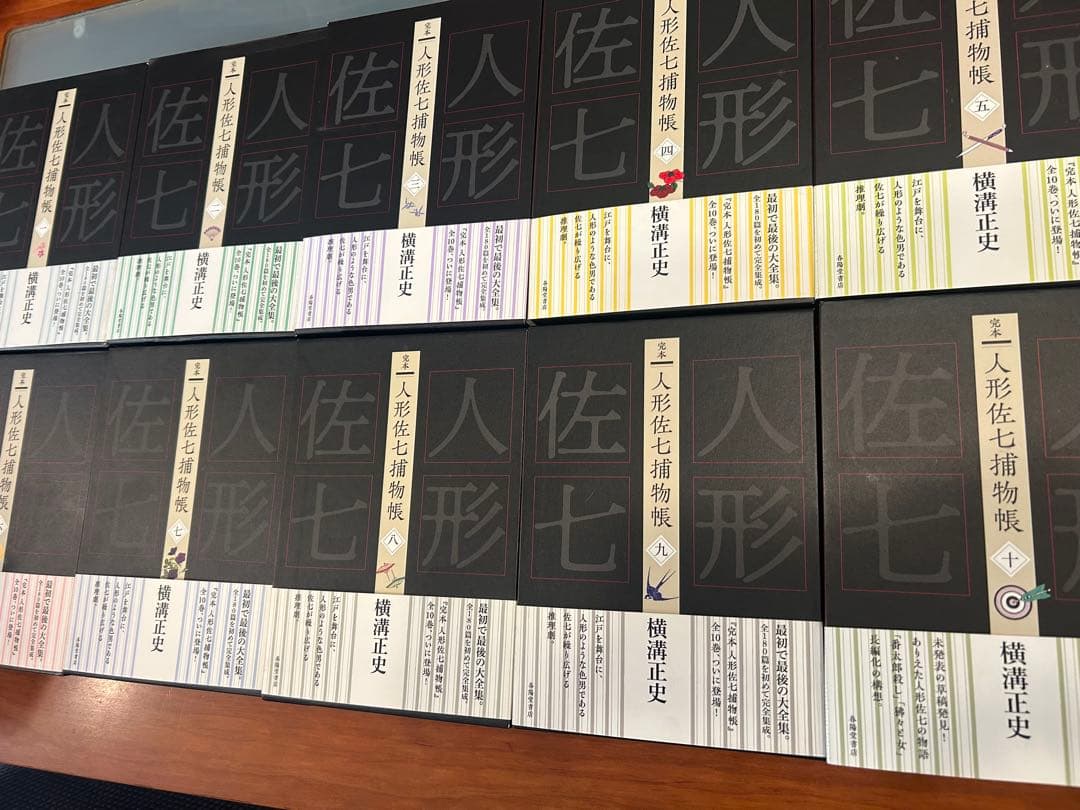 人形
佐七
完本
人形佐七捕物帳
一
最初で最後の大全集。
全180篇を初めて完全集成。
『完本 人形佐七捕物帳』
全10巻、ついに登場!
横溝正史
人形
佐七
完本
人形佐七捕物帳
二
最初で最後の大全集。
全180篇を初めて完全集成。
『完本 人形佐七捕物帳』
全10巻、ついに登場!
横溝正史
江戸を舞台に、
人形のような色男である
佐七が繰り広げる
推理劇。
春陽堂書店
人形
佐七
完本
人形佐七捕物帳
三
最初で最後の大全集。
全180篇を初めて完全集成。
『完本 人形佐七捕物帳』
全10巻、ついに登場!
横溝正史
江戸を舞台に、
人形のような色男である
佐七が繰り広げる
推理劇。
春陽堂書店
人形
佐七
人形佐七捕物帳
四
最初で最後の大全集。
全180篇を初めて完全集成。
『完本 人形佐七捕物帳』
全10巻、ついに登場!
横溝正史
江戸を舞台に、
人形のような色男である
佐七が繰り広げる
推理劇。
春陽堂書店
形
佐七
佐七捕物帳
五
『完本 人形佐七捕物帳』
全10巻、ついに登場!
横溝正史
江戸を舞台に、
人形のような色男である
佐七が繰り広げる
推理劇。
春陽堂書店
人形
完本
人形佐七捕物帳
最初で最後の大全集。
全180篇を初めて完全集成。
『完本 人形佐七捕物帳』
全10巻、ついに登場!
人形
佐七
完本
人形佐七捕物帳
七
最初で最後の大全集。
全180篇を初めて完全集成。
『完本 人形佐七捕物帳』
全10巻、ついに登場!
横溝正史
江戸を舞台に、
人形のような色男である
佐七が繰り広げる
推理劇。
春陽堂書店
人形
佐七
完本
人形佐七捕物帳
八
最初で最後の大全集。
全180篇を初めて完全集成。
『完本 人形佐七捕物帳』
全10巻、ついに登場!
横溝正史
江戸を舞台に、
人形のような色男である
佐七が繰り広げる
推理劇。
春陽堂書店
人形
佐七
完本
人形佐七捕物帳
九
最初で最後の大全集。
全180篇を初めて完全集成。
『完本 人形佐七捕物帳』
全10巻、ついに登場!
横溝正史
江戸を舞台に、
人形のような色男である
佐七が繰り広げる
推理劇。
春陽堂書店
佐七
完本
人形佐七捕物帳
十
横溝正史
未発表の草稿発見!
ありえた人形佐七の物語
「番太郎殺し」「狒々と女」
長編化の構想。
春陽堂書店